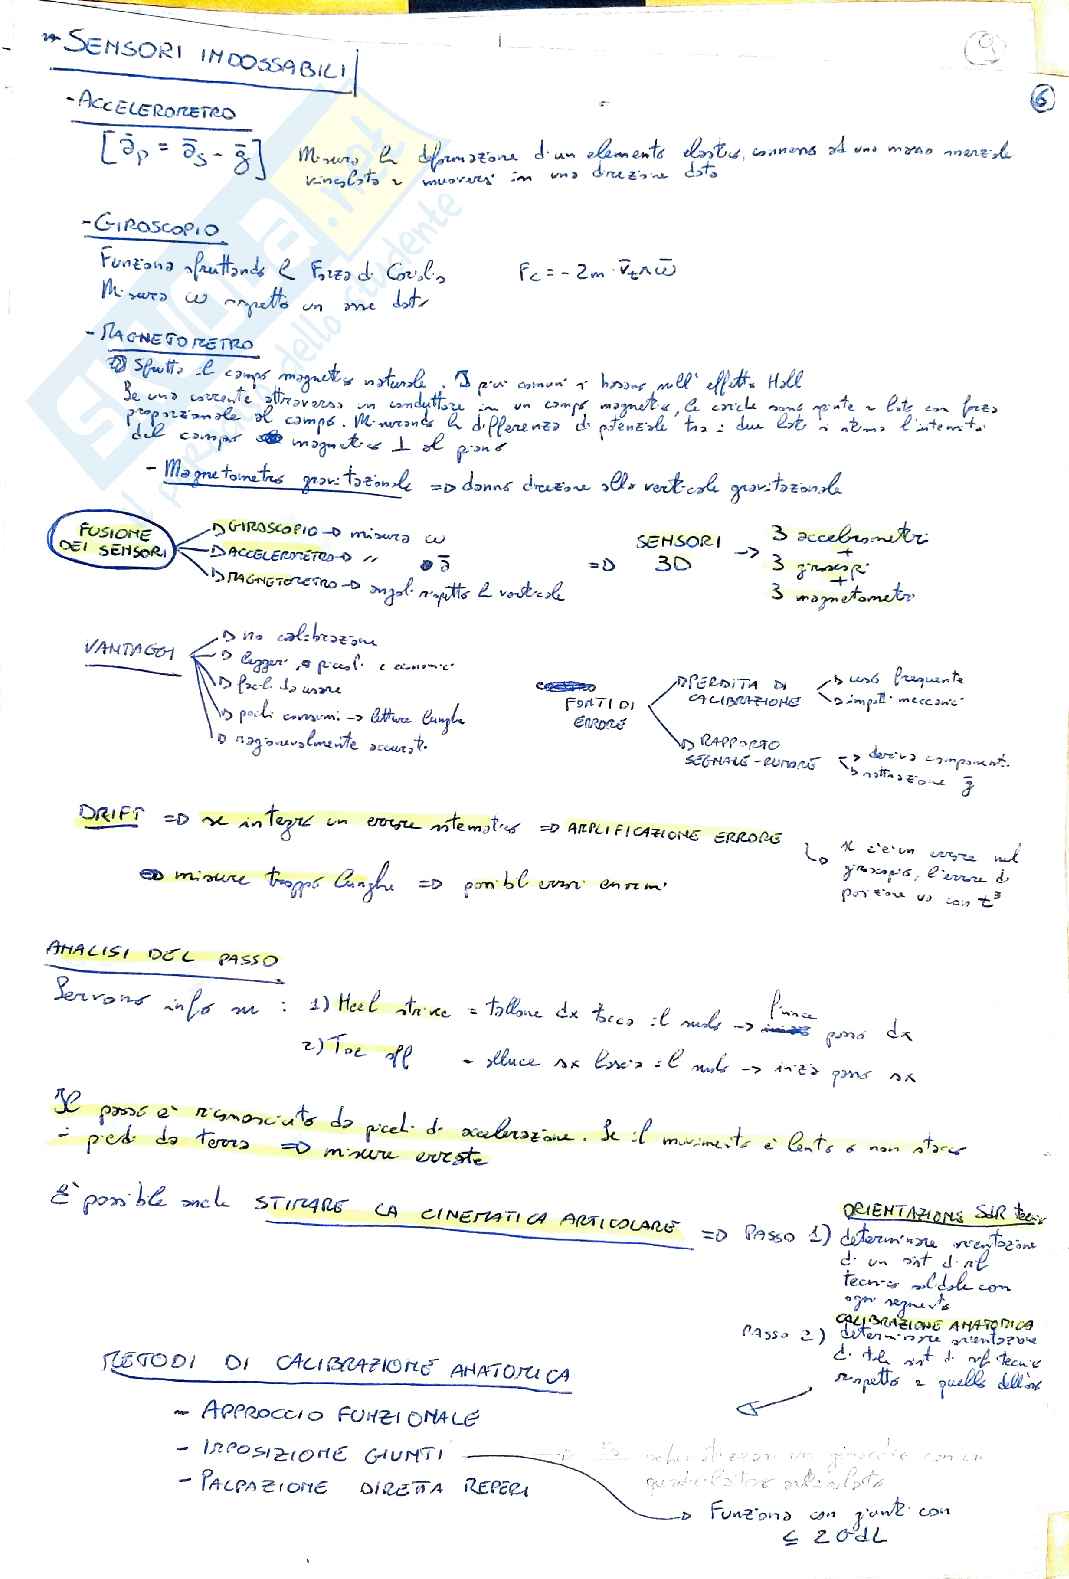 SENSORI INDOSSABILI
9
6
- ACCELEROMETRO
[ā_p = ā_s - ḡ] Misura la deformazione d'un elemento elastico, connesso ad una massa inerziale
vincolata a muoversi in una direzione data
- GIROSCOPIO
Funziona sfruttando la Forza di Coriolis F_c = -2m · v̄_t ∧ ω̄
Misura ω rispetto un asse dato
- MAGNETOMETRO
Sfrutta il campo magnetico naturale. I più comuni si basano sull'effetto Hall
Se una corrente attraversa un conduttore in un campo magnetico, le cariche sono spinte a lato con forza
proporzionale al campo. Misurando la differenza di potenziale tra i due lati si stima l'intensità
del campo magnetico ⊥ al piano
- Magnetometro gravitazionale => danno direzione alla verticale gravitazionale
FUSIONE DEI SENSORI
GIROSCOPIO → misura ω
ACCELEROMETRO → " ā
MAGNETOMETRO → angoli rispetto la verticale
=> SENSORI 3D → 3 accelerometri
+
3 giroscopi
+
3 magnetometri
VANTAGGI
no calibrazione
leggeri, piccoli e economici
facili da usare
pochi consumi → letture lunghe
ragionevolmente accurati
FONTI DI ERRORE
PERDITA DI CALIBRAZIONE
uso frequente
impatti meccanici
RAPPORTO SEGNALE-RUMORE
deriva componenti
sottrazione ḡ
DRIFT => se integro un errore sistematico => AMPLIFICAZIONE ERRORE
se c'è un errore nel
giroscopio, l'errore di
posizione va con t³
=> misure troppo lunghe => possibili errori enormi
ANALISI DEL PASSO
Servono info su: 1) Heel strike = tallone dx tocca il suolo → finisce passo dx
2) Toe off - alluce sx lascia il suolo → inizia passo sx
Il passo è riconosciuto da picchi di accelerazione. Se il movimento è lento o non stacco
i piedi da terra => misure errate
È possibile anche STIMARE LA CINEMATICA ARTICOLARE =>
ORIENTAZIONE SdR tecnico
PASSO 1) determinare orientazione
di un sist di rif
tecnico solidale con
ogni segmento
CALIBRAZIONE ANATOMICA
PASSO 2) determinare orientazione
di tale sist di rif tecnico
rispetto a quello dell'oss
METODI DI CALIBRAZIONE ANATOMICA
- APPROCCIO FUNZIONALE
- IMPOSIZIONE GIUNTI
- PALPAZIONE DIRETTA REPERI
→ Funziona con giunti con
≤ 2 GdL
SKUOLA.net
Il portale dello studente